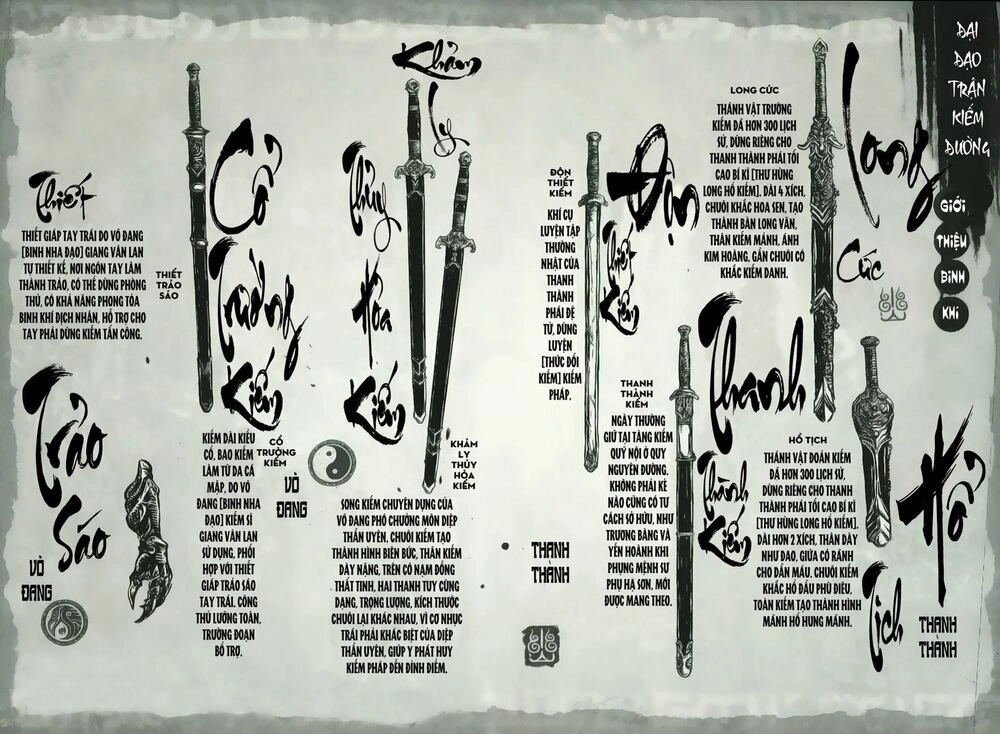 ĐẠI
ĐẠO
TRẬN
KIẾM
ĐƯỜNG
GIỚI
THIỆU
BINH
KHÍ
Long
Cức
LONG CỨC
THÁNH VẬT TRƯỜNG
KIẾM ĐÃ HƠN 300 LỊCH
SỬ, DÙNG RIÊNG CHO
THANH THÀNH PHÁI TỐI
CAO BÍ KÍ [THƯ HÙNG
LONG HỔ KIẾM]. DÀI 4 XÍCH,
CHUÔI KHẮC HOA SEN, TẠO
THÀNH BÀN LONG VĂN,
THÂN KIẾM MẢNH, ÁNH
KIM HOÀNG. GẦN CHUÔI CÓ
KHẮC KIẾM DANH.
Hổ
Tịch
HỔ TỊCH
THÁNH VẬT ĐOẢN KIẾM
ĐÃ HƠN 300 LỊCH SỬ,
DÙNG RIÊNG CHO THANH
THÀNH PHÁI TỐI CAO BÍ KÍ
[THƯ HÙNG LONG HỔ KIẾM].
DÀI HƠN 2 XÍCH, THÂN DÀY
NHƯ ĐAO, GIỮA CÓ RÃNH
CHO DẪN MÁU. CHUÔI KIẾM
KHẮC HỔ ĐẦU PHÙ ĐIÊU,
TOÀN KIẾM TẠO THÀNH HÌNH
MÃNH HỔ HUNG MÃNH.
THANH
THÀNH
Độn
Thiết
Kiếm
ĐỘN
THIẾT
KIẾM
KHÍ CỤ
LUYỆN TẬP
THƯỜNG
NHẬT CỦA
THANH
THÀNH
PHÁI ĐỆ
TỬ, DÙNG
LUYỆN
[THỨC ĐỐI
KIẾM] KIẾM
PHÁP.
Thanh
Thành
Kiếm
THANH
THÀNH
KIẾM
NGÀY THƯỜNG
GIỮ TẠI TÀNG KIẾM
QUỸ NỘI Ở QUY
NGUYÊN ĐƯỜNG.
KHÔNG PHẢI KẺ
NÀO CŨNG CÓ TƯ
CÁCH SỞ HỮU, NHƯ
TRƯƠNG BẰNG VÀ
YẾN HOÀNH KHI
PHỤNG MỆNH SƯ
PHỤ HẠ SƠN, MỚI
ĐƯỢC MANG THEO.
THANH
THÀNH
Khảm
Ly
Thủy
Hỏa
Kiếm
KHẢM
LY THỦY
HỎA
KIẾM
SONG KIẾM CHUYÊN DỤNG CỦA
VÕ ĐANG PHÓ CHƯỞNG MÔN DIỆP
THẦN UYÊN. CHUÔI KIẾM TẠO
THÀNH HÌNH BIÊN BỨC, THÂN KIẾM
DÀY NẶNG, TRÊN CÓ NẠM ĐỒNG
THẤT TINH, HAI THANH TUY CÙNG
DẠNG, TRỌNG LƯỢNG, KÍCH THƯỚC
CHUÔI LẠI KHÁC NHAU, VÌ CƠ NHỤC
TRÁI PHẢI KHÁC BIỆT CỦA DIỆP
THẦN UYÊN, GIÚP Y PHÁT HUY
KIẾM PHÁP ĐẾN ĐỈNH ĐIỂM.
Cổ
Trường
Kiếm
CỔ
TRƯỜNG
KIẾM
KIẾM DÀI KIỂU
CỔ, BAO KIẾM
LÀM TỪ DA CÁ
MẬP, DO VÕ
ĐANG [BINH NHA
ĐẠO] KIẾM SĨ
GIANG VÂN LAN
SỬ DỤNG, PHỐI
HỢP VỚI THIẾT
GIÁP TRẢO SÁO
TAY TRÁI. CÔNG
THỦ LƯỠNG TOÀN,
TRƯỜNG ĐOẢN
BỔ TRỢ.
VÕ
ĐANG
Thiết
Trảo
Sáo
THIẾT
TRẢO
SÁO
THIẾT GIÁP TAY TRÁI DO VÕ ĐANG
[BINH NHA ĐẠO] GIANG VÂN LAN
TỰ THIẾT KẾ, NƠI NGÓN TAY LÀM
THÀNH TRẢO, CÓ THỂ DÙNG PHÒNG
THỦ, CÓ KHẢ NĂNG PHONG TỎA
BINH KHÍ ĐỊCH NHÂN, HỖ TRỢ CHO
TAY PHẢI DÙNG KIẾM TẤN CÔNG.
VÕ
ĐANG